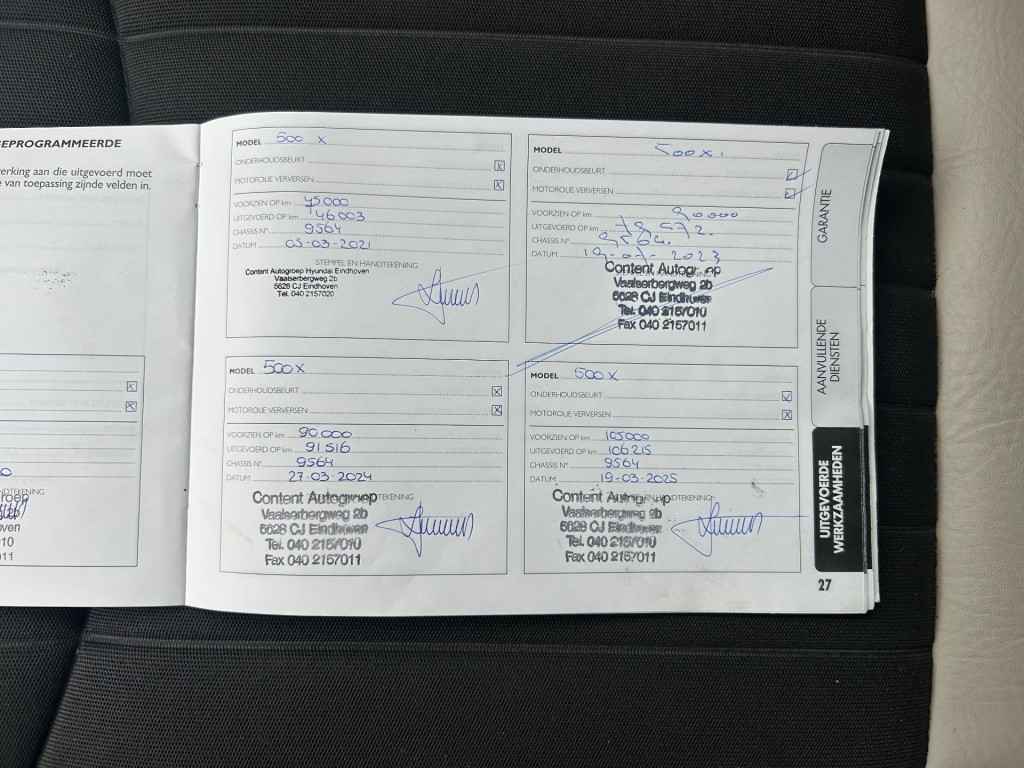 EPROGRAMMEERDE
erking aan die uitgevoerd moet
van toepassing zijnde velden in.
MODEL 500 X
ONDERHOUDSBEURT
MOTOROLIE VERVERSEN
VOORZIEN OP km 45000
UITGEVOERD OP km 46003
CHASSIS N° 9564
DATUM 05-03-2021
STEMPEL EN HANDTEKENING
Content Autogroep Hyundai Eindhoven
Vaalserbergweg 2b
5628 CJ Eindhoven
Tel. 040 2157020
MODEL 500X.
ONDERHOUDSBEURT
MOTOROLIE VERVERSEN
VOORZIEN OP km 90000
UITGEVOERD OP km 78672.
CHASSIS N° 9564.
DATUM 19-07-2023
Content Autogroep
Vaalserbergweg 2b
5628 CJ Eindhoven
Tel. 040 2157010
Fax 040 2157011
MODEL 500X
ONDERHOUDSBEURT
MOTOROLIE VERVERSEN
VOORZIEN OP km 90.000
UITGEVOERD OP km 91516
CHASSIS N° 9564
DATUM 27-03-2024
HANDTEKENING
Content Autogroep
Vaalserbergweg 2b
5628 CJ Eindhoven
Tel. 040 2157010
Fax 040 2157011
MODEL 500X
ONDERHOUDSBEURT
MOTOROLIE VERVERSEN
VOORZIEN OP km 105000
UITGEVOERD OP km 106215
CHASSIS N° 9564
DATUM 19-03-2025
EN HANDTEKENING
Content Autogroep
Vaalserbergweg 2b
5628 CJ Eindhoven
Tel. 040 2157010
Fax 040 2157011
GARANTIE
AANVULLENDE
DIENSTEN
UITGEVOERDE
WERKZAAMHEDEN
27